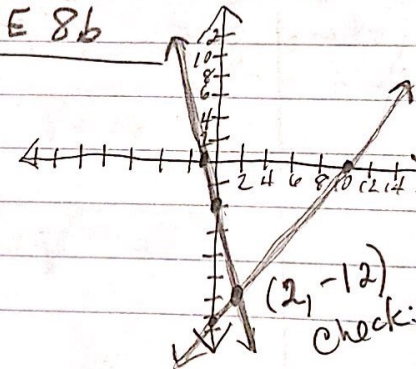 E 8b
12
10
8
6
4
2
2 4 6 8 10 12 14
(2, -12)
check: